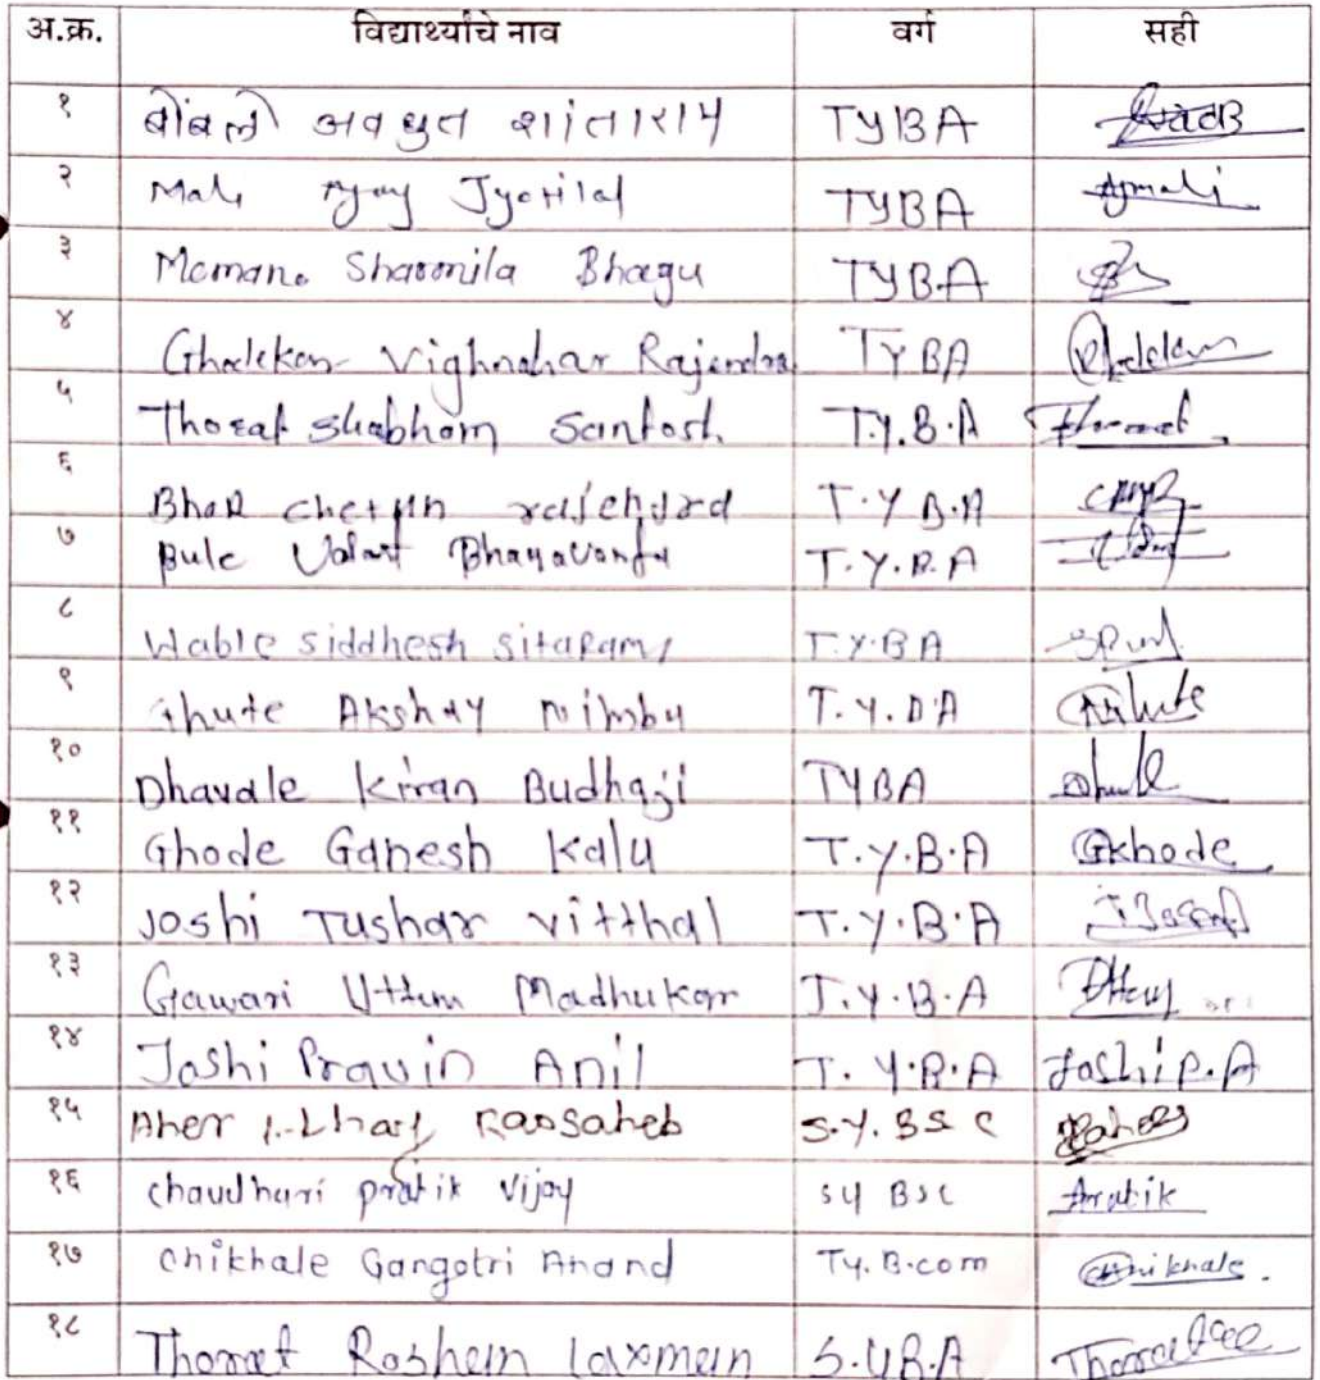 अ.क्र. विद्यार्थ्यांचे नाव वर्ग सही
१ बोंबले अवधुत शांताराम TYBA
२ Mali Ajay Jyotilal TYBA Ajmali
३ Memane Sharmila Bhagu TYB.A
४ Ghalekar Vighnahar Rajendra TYBA
५ Thorat Shubham Santosh T.Y.B.A Thorat
६ Bhor chetan rajendra T.Y B.A
७ Bule Bhagavanta T.Y.B.A
८ Wable siddhesh sitaram T.Y.BA
९ Akshay T.Y.BA
१० Dhavale Kiran Budhaji TYBA
११ Ghode Ganesh Kalu T.Y.B.A Gkhode
१२ Joshi Tushar vitthal T.Y.B.A
१३ Gawari Uttum Madhukar T.Y.B.A
१४ Joshi Pravin Anil T.Y.B.A Joshi P.A
१५ Aher Raosaheb S.Y.BSC
१६ chaudhari pratik vijay SY BSC Pratik
१७ Chikhale Gangotri Anand TY.B.com Chikhale.
१८ Thorat Roshan laxman S.Y.B.A